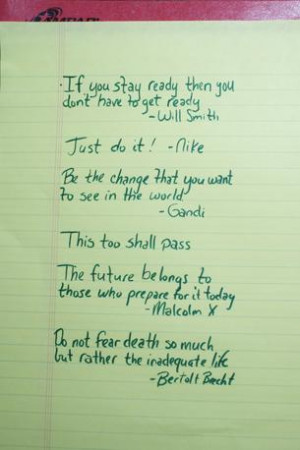 · If you stay ready then you
don't have to get ready
- Will Smith
Just do it! - Nike
Be the change that you want
to see in the world
- Gandi
This too shall pass
The future belongs to
those who prepare for it today
- Malcolm X
Do not fear death so much
but rather the inadequate life
- Bertolt Brecht